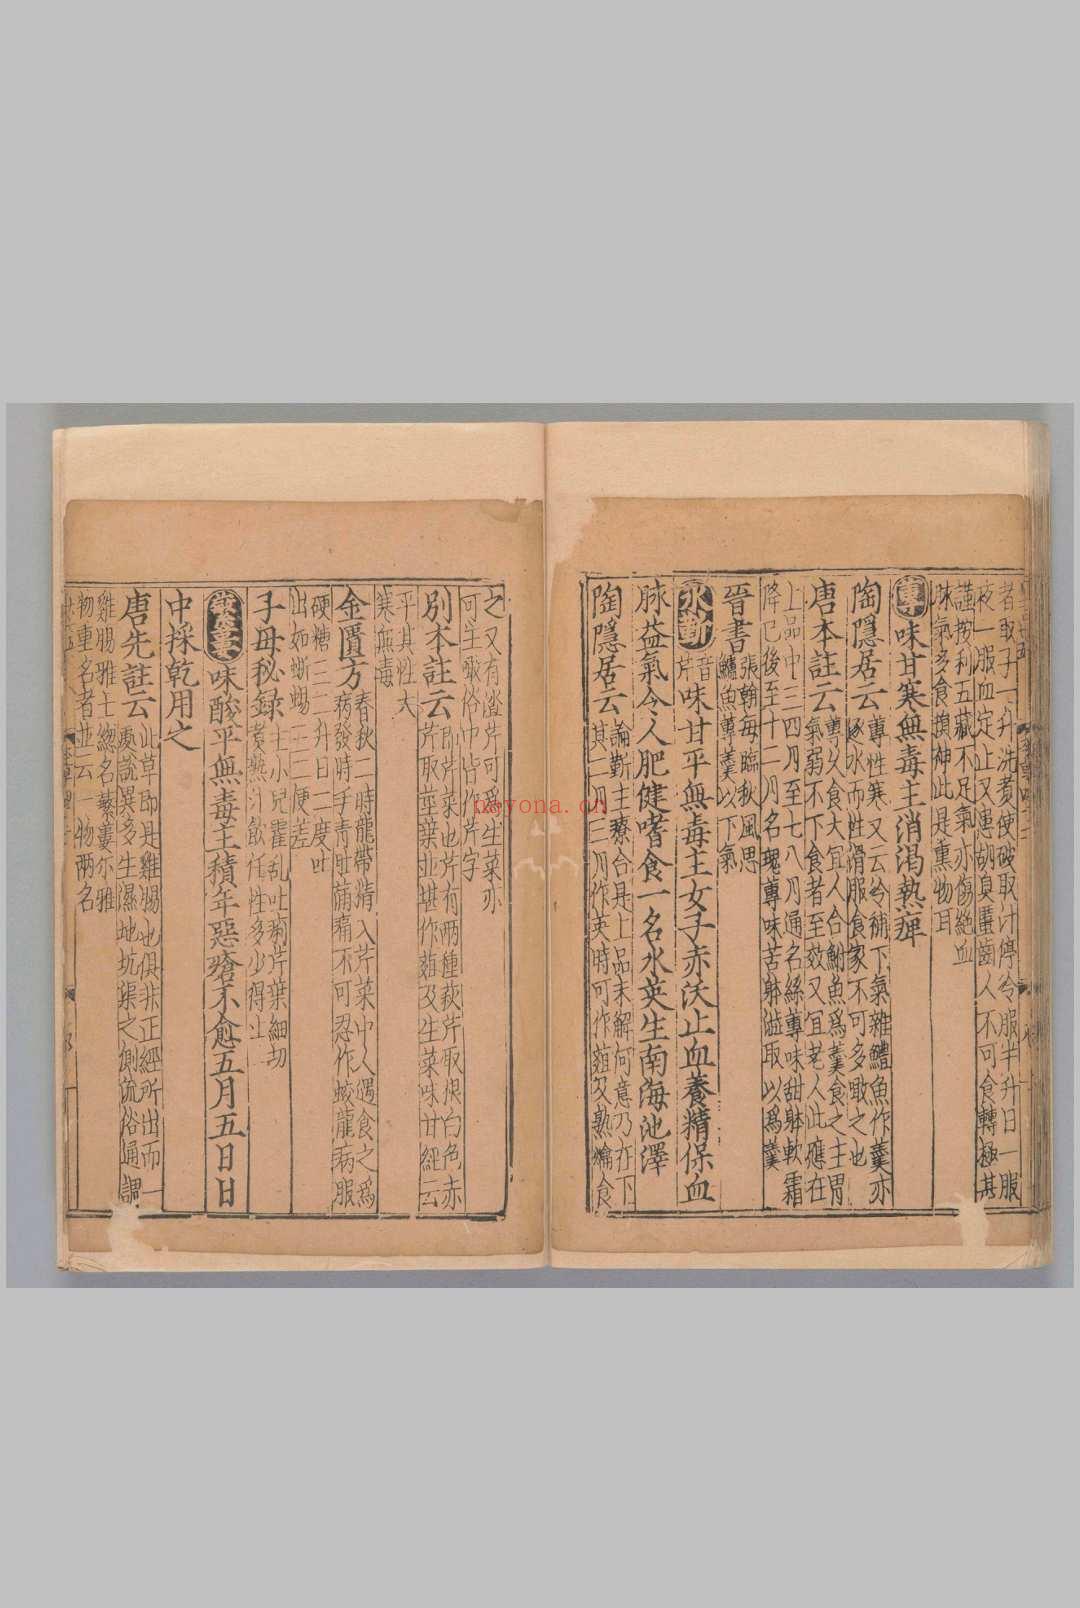 者取子一升洗煮使破取汁停冷服半升日一服
夜一服血定止又患胡臭䘌齒人不可食轉極甚
謹按利五藏不足氣亦傷絕血
味氣多食損神此是熏物耳
蓴味甘寒無毒主消渴熱痺
陶隱居云蓴性寒又云冷補下氣雜鱧魚作羹亦
逐水而性滑服食家不可多噉之也
唐本註云蓴久食大宜人合鮒魚爲羹食之主胃
氣弱不下食者至效又宜老人此應在
上品中三四月至七八月通名絲蓴味甜躰軟霜
降已後至十二月名瑰蓴味苦躰澁取以爲羹
晉書張翰每臨秋風思
鱸魚蓴羹以下氣
水斳音
芹味甘平無毒主女子赤沃止血養精保血
脉益氣令人肥健嗜食一名水英生南海池澤
陶隱居云論斳主療合是上品未解何意乃在下
其二月三月作英時可作葅及熟爚食
之又有渣芹可爲生菜亦
可主噉俗中皆作芹字
別本註云即芹菜也芹有兩種荻芹取根白色赤
芹取莖葉並堪作葅及生菜味甘經云
平其性大
寒無毒
金匱方春秋二時龍帶精入芹菜中人遇食之爲
病發時手青肚滿痛不可忍作蛟龍病服
硬糖三二升日二度吐
出如蜥蜴三二便差
子母秘録主小兒霍乱吐痢芹葉細切
煮熟汁飲任性多少得止
蘩蔞味酸平無毒主積年惡瘡不愈五月五日日
中採乾用之
唐先註云此草即是雞腸也俱非正經所出而二
處說異多生濕地坑渠之側流俗通謂
雞腸雅士總名蘩蔞尔雅
物重名者並云一物兩名
nayona.cn